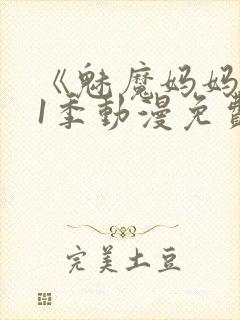 《魅魔妈妈
1季動漫免費
完美土豆